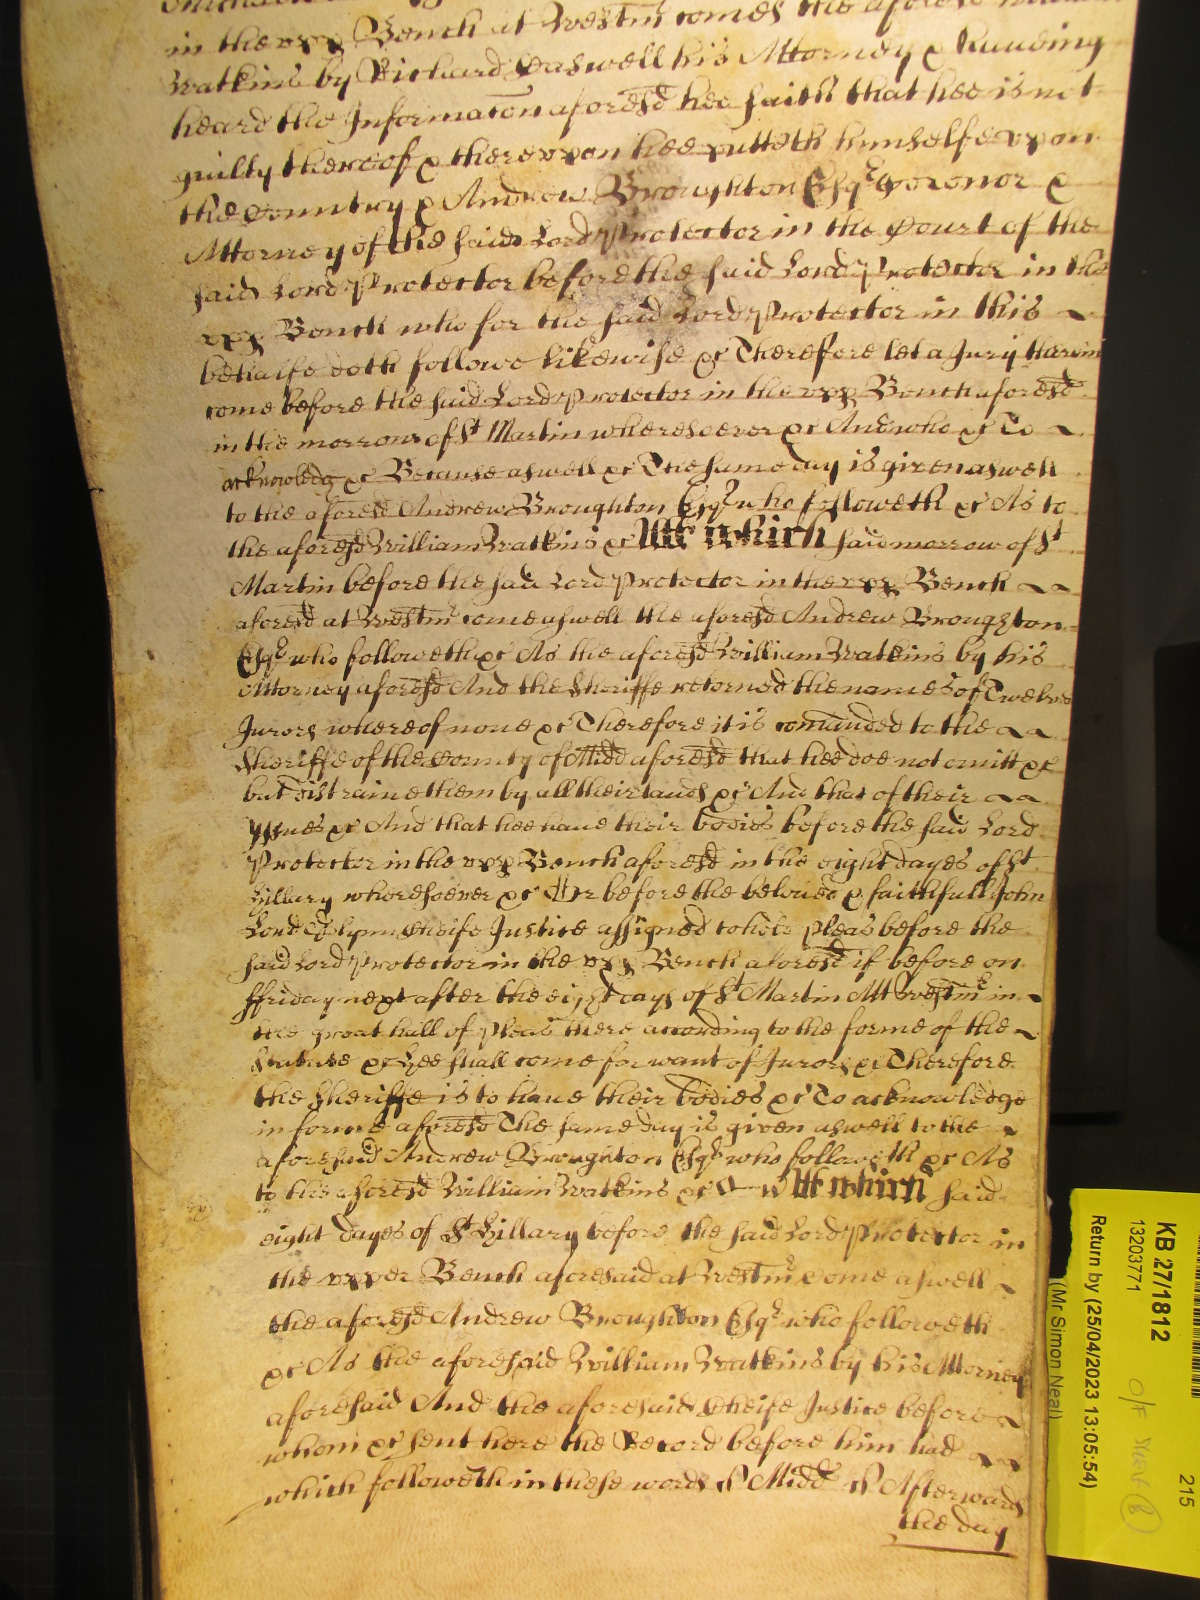 in the upp Bench at Westmr comes the aforesd William
Watkins by Richard Caswell his Attorney & haueing
heard the Informacon aforesd hee saith that hee is not
guilty thereof & thereupon hee putteth himselfe upon
the Countrey & Andrew Broughton Esqr Coronor &
Attorney of the said Lord Protector in the Court of the
said Lord Protector before the said Lord Protector in the
upp Bench who for the said Lord Protector in this
behalfe doth followe likewise &c Therefore let a Jury therein
come before the said Lord Protector in the upp Bench aforesd
in the morrow of St Martin wheresoever &c And who &c To
acknowledg &c Because aswell &c The same day is given aswell
to the aforesd Andrew Broughton Esqr who followeth &c As to
the aforesd William Watkins &c Att which said morrow of St
Martin before the said Lord Protector in the upp Bench
aforesd at Westmr come aswell the aforesd Andrew Broughton
Esqr who followeth &c As the aforesd William Watkins by his
Attorney aforesd And the Sheriffe retorned the names of Twelve
Jurors whereof none &c Therefore it is comanded to the
Sheriffe of the County of Midd aforesd that hee doe not omitt &c
but distraine them by all their lands &c And that of their
yssues &c And that hee haue their bodies before the said Lord
Protector in the upp Bench aforesd in the eight dayes of St
Hillary wheresoever &c Or before the beloued & faithfull John
Lord Glynn Cheife Justice assigned to hold pleas before the
said Lord Protector in the upp Bench aforesd if before on
ffriday next after the eight days of St Martin Att Westmr in
the great hall of pleas there according to the forme of the
Statute &c hee shall come for want of Jurors &c Therefore
the Sheriffe is to haue their bodies &c To acknowledge
in forme aforesd The same day is given aswell to the
aforesaid Andrew Broughton Esqr who followeth &c As
to the aforesd William Watkins &c Att which said
eight dayes of St Hillary before the said Lord Protector in
the upper Bench aforesaid at Westmr Come aswell
the aforesd Andrew Broughton Esqr who followeth
&c As the aforesaid William Watkins by his Attorney
aforesaid And the aforesaid Cheife Justice before
whom &c sent here the Record before him had
which followeth in these words ss Midd ss Afterwards
the day
KB 27/1812
13203771
Return by (25/04/2023 13:05:54)
(Mr Simon Neal)
215